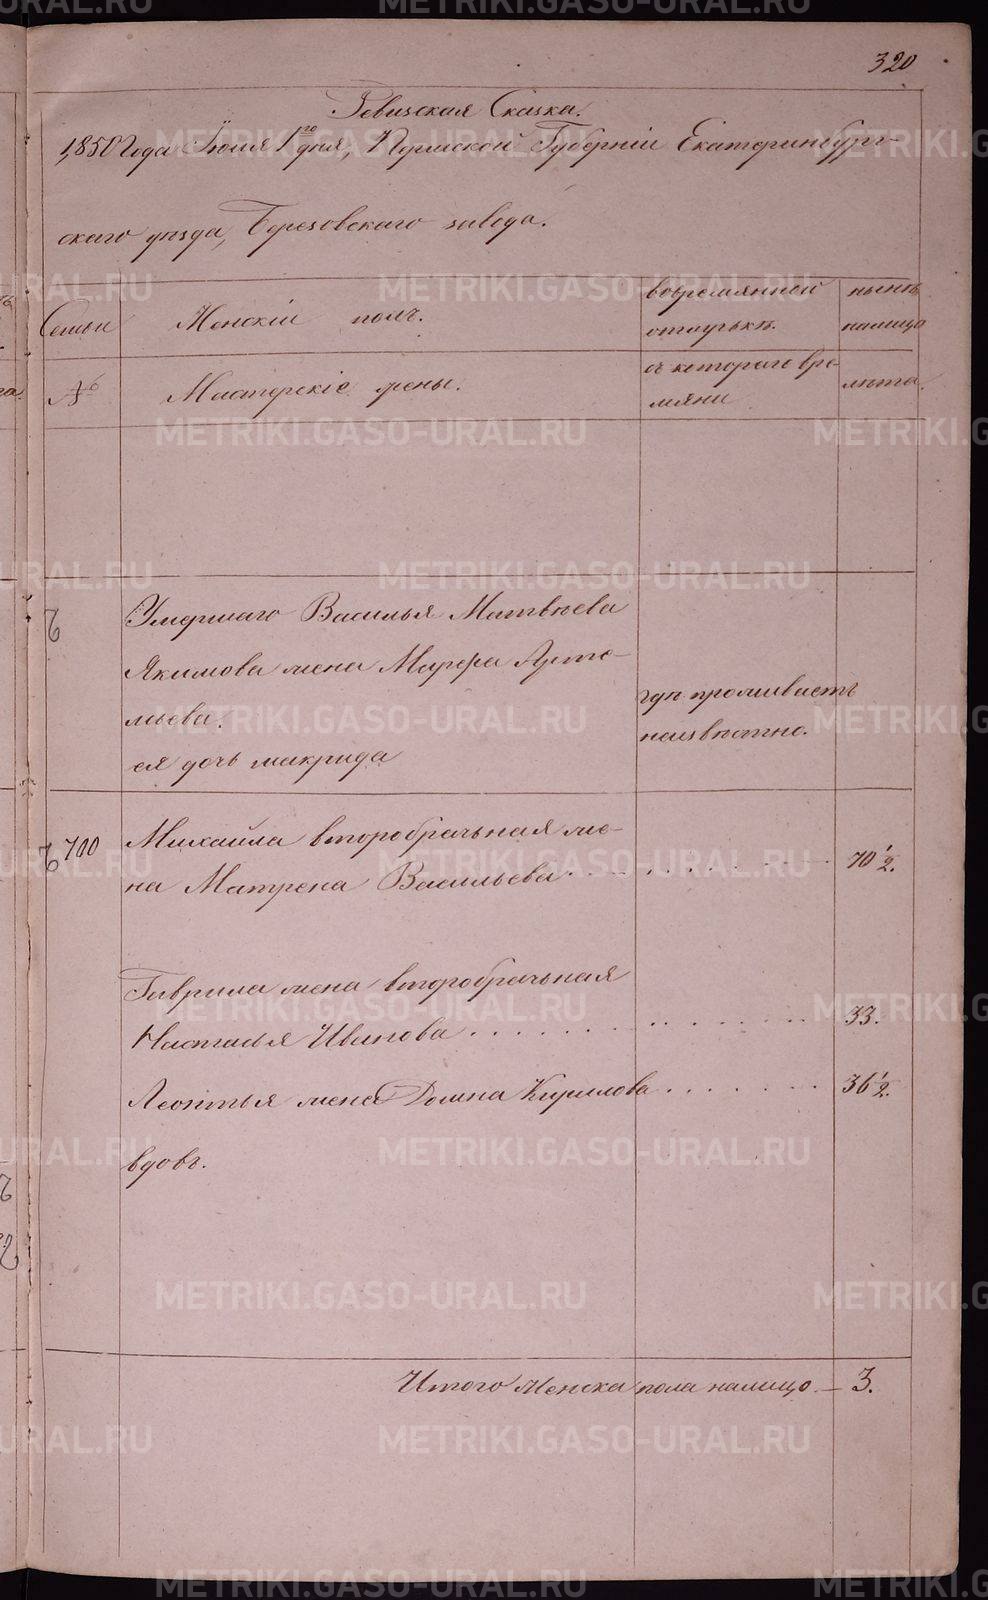 320
Ревизская Сказка.
1850 года Июля 1го дня, Пермской Губерніи Екатеринбург-
скаго уѣзда, Березовскаго завода.
Семьи
Женскій полъ.
вовремянной
отлучькѣ.
нынѣ
налицо
№
Мастерскіе жены.
съ котораго вре-
мяни
лѣта.
Умершаго Василья Матвѣева
Якимова жена Марфа Арте-
мьева.
ея дочь макрида
гдѣ проживаетъ
неизвѣстно.
700
Михайла второбрачьная же-
на Матрена Васильева
70 1/2.
Гаврила жена второбрачьная
Настасья Иванова
33.
Леонтья жена Домна Кирилова
36 1/2.
вдовъ.
Итого женска пола налицо — 3.
METRIKI.GASO-URAL.RU